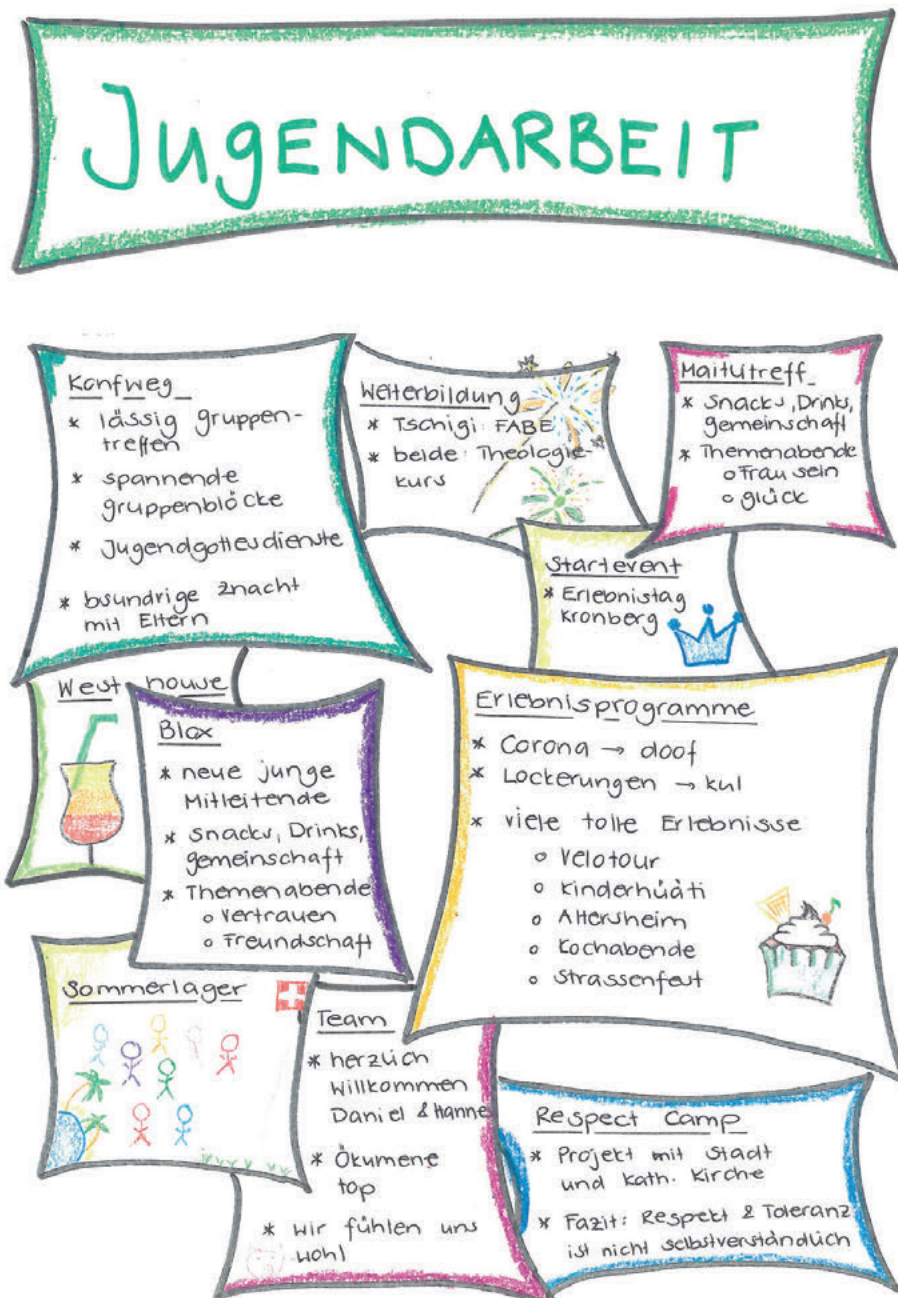 Jugendarbeit
Konfweg
* lässig gruppen-
treffen
* spannende
gruppenblöcke
* Jugendgottesdienste
* bsundrige znacht
mit Eltern
Weiterbildung
* Tschigi: FABE
* beide: Theologie-
kurs
Maitlitreff
* Snacks, Drinks,
gemeinschaft
* Themenabende
o Frau sein
o glück
Startevent
* Erlebnistag
Kronberg
West house
Blox
* neue junge
Mitleitende
* Snacks, Drinks,
gemeinschaft
* Themenabende
o Vertrauen
o Freundschaft
Erlebnisprogramme
* Corona → doof
* Lockerungen → kul
* viele tolle Erlebnisse
o Velotour
o Kinderhüäti
o Altersheim
o Kochabende
o Strassenfest
Sommerlager
Team
* herzlich
Willkommen
Daniel & Hanne
* Ökumene
top
* Wir fühlen uns
wohl
Respect Camp
* Projekt mit Stadt
und kath. Kirche
* Fazit: Respekt & Toleranz
ist nicht selbstverständlich